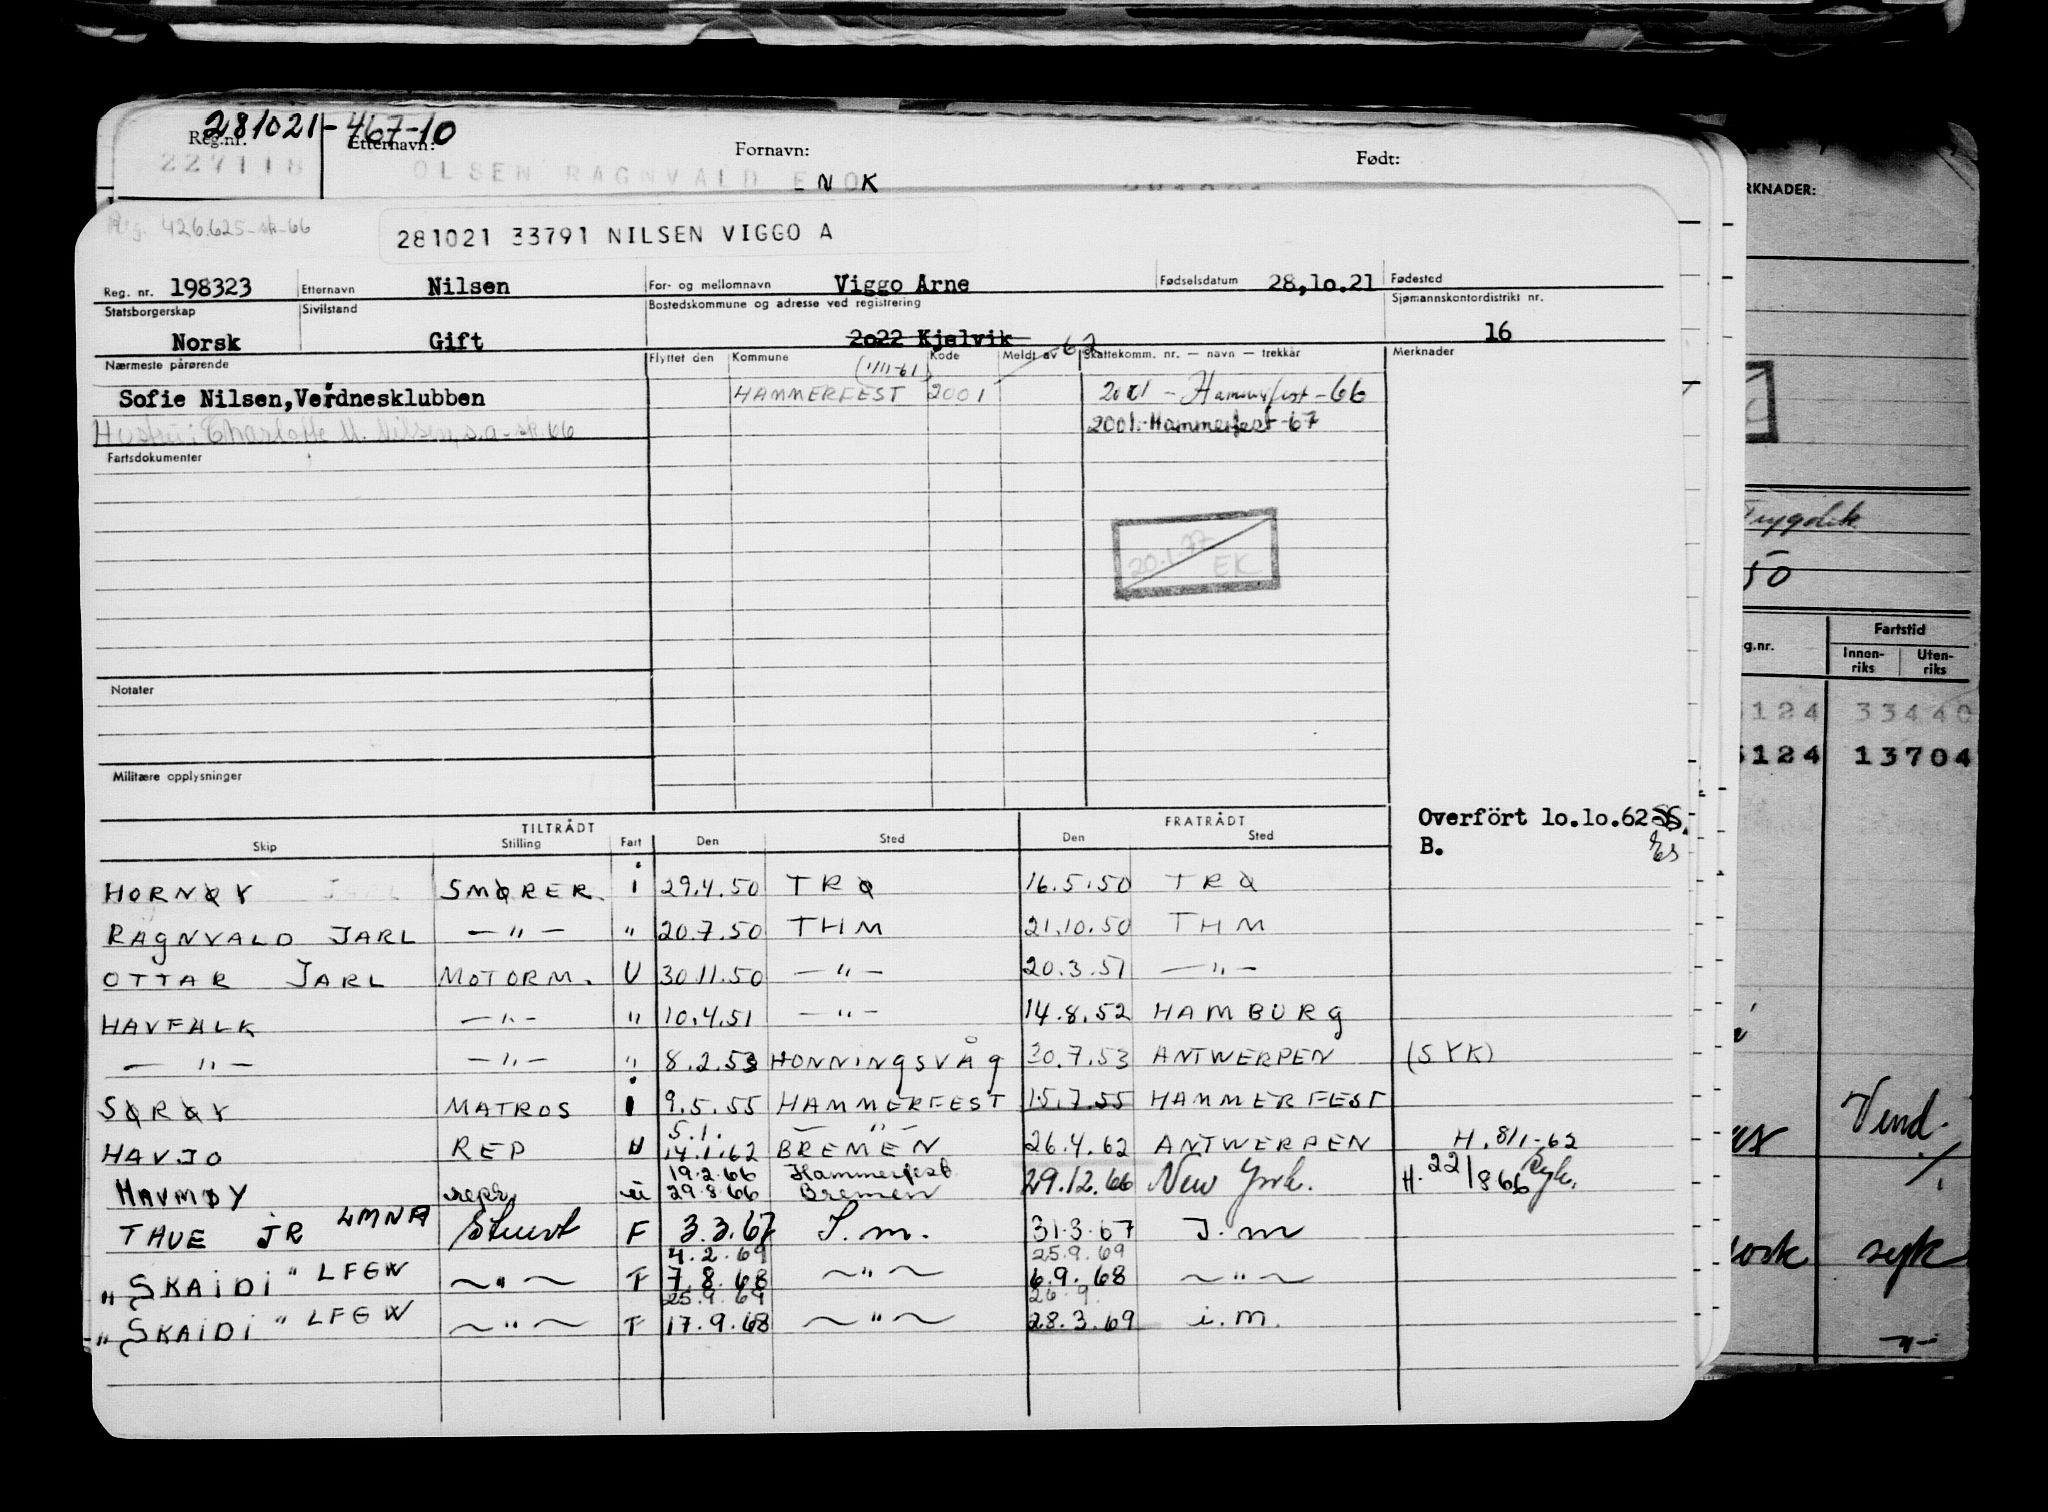 281021-467-10
Reg.nr. Etternavn: Fornavn: Født:
227118 OLSEN RAGNVALD ENOK
RKNADER:
Reg. 426.625-sk-66
281021 33791 NILSEN VIGGO A
Reg. nr. 198323 Etternavn Nilsen For- og mellomnavn Viggo Arne Fødselsdatum 28,10.21 Fødested
Statsborgerskap Sivilstand Bostedskommune og adresse ved registrering Sjømannskontordistrikt nr.
Norsk Gift 2022 Kjelvik 16
Nærmeste pårørende Flyttet den Kommune Kode Meldt av 62 Skattekomm. nr. — navn — trekkår Merknader
(1/11-61)
Sofie Nilsen, Verdnesklubben HAMMERFEST 2001 2001 - Hammerfest - 66
Hustru: Charlotte M. Nilsen, s.a.-sk.66 2001.-Hammerfest-67
Fartsdokumenter
20.1.77 EK
Notater
Militære opplysninger
TILTRÅDT FRATRÅDT Overfört 10.10.62
Skip Stilling Fart Den Sted Den Sted B.
HORNØY JARL SMØRER i 29.4.50 TRØ 16.5.50 TRØ
RAGNVALD JARL — " — " 20.7.50 THM 21.10.50 THM
OTTAR JARL MOTORM. U 30.11.50 — " — 20.3.51 — " —
HAVFALK — " — " 10.4.51 — " — 14.8.52 HAMBURG
— " — — " — " 8.2.53 HONNINGSVÅG 30.7.53 ANTWERPEN (SYK)
SØRØY MATROS i 9.5.55 HAMMERFEST 15.7.55 HAMMERFEST
5.1. — " —
HAVJO REP U 14.1.62 BREMEN 26.4.62 ANTWERPEN H. 8/1-62
19.2.66 Hammerfest
HAVMØY repr. u 29.8.66 Bremen 29.12.66 New York. H. 22/8 66
THUE JR LMNA Stuert F 3.3.67 I.m. 31.3.67 I.m
4.2.69 25.9.69
"SKAIDI" LFGW ~ " ~ F 7.8.68 ~ " ~ 6.9.68 ~ " ~
25.9.69 26.9.
"SKAIDI" LFGW ~ " ~ F 17.9.68 ~ " ~ 28.3.69 i.m.
50
g.nr. Fartstid
Innen-riks Uten-riks
5124 33440
5124 13704
Vend.
syk